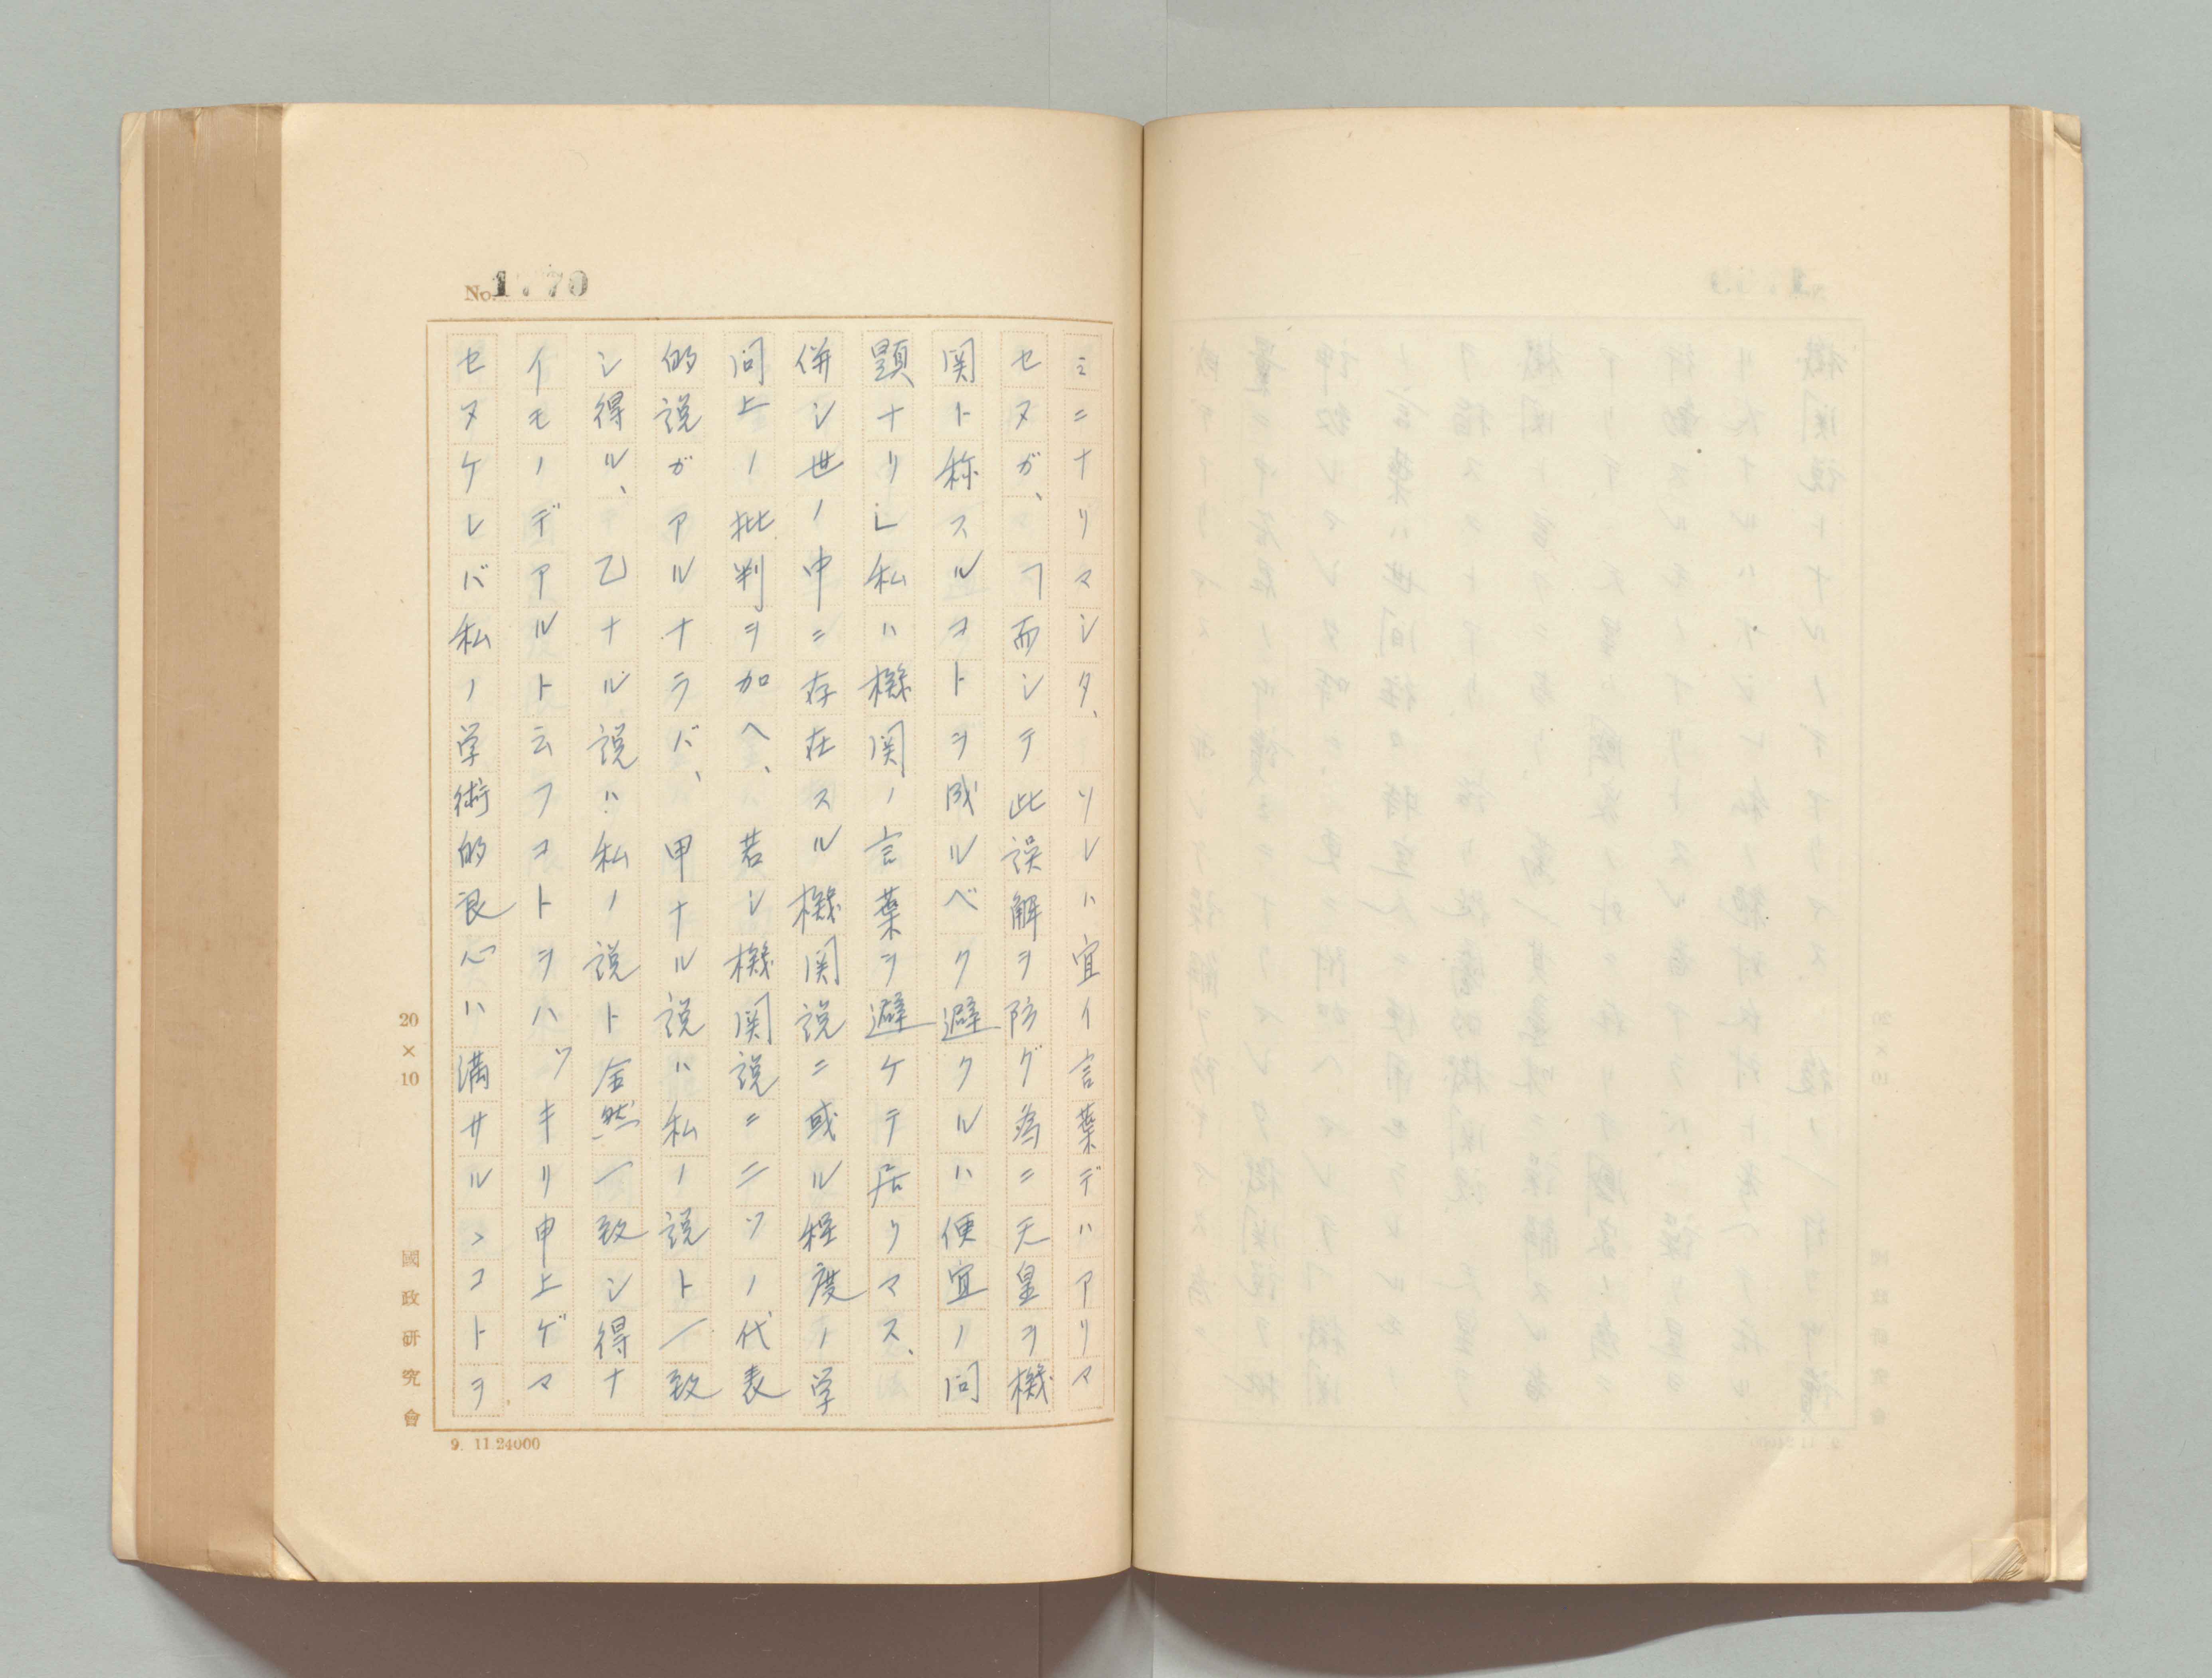 No. 1.70
ミニナリマシタ、ソレハ宜イ言葉デハアリマ
セヌガ、「而シテ此誤解ヲ防グ為ニ天皇ヲ機
関ト称スルコトヲ成ルベク避クルハ便宜ノ問
題ナリ」私ハ機関ノ言葉ヲ避ケテ居リマス、
併シ世ノ中ニ存在スル機関説ニ或ル程度ノ学
問上ノ批判ヲ加ヘ、若シ機関説ニ二ツノ代表
的説ガアルナラバ、甲ナル説ハ私ノ説ト一致
シ得ル、乙ナル説ハ私ノ説ト全然一致シ得ナ
イモノデアルト云フコトヲハツキリ申上ゲマ
セヌケレバ私ノ学術的良心ハ満サルヽコトヲ
20×10
國政硏究會
9. 11.24000